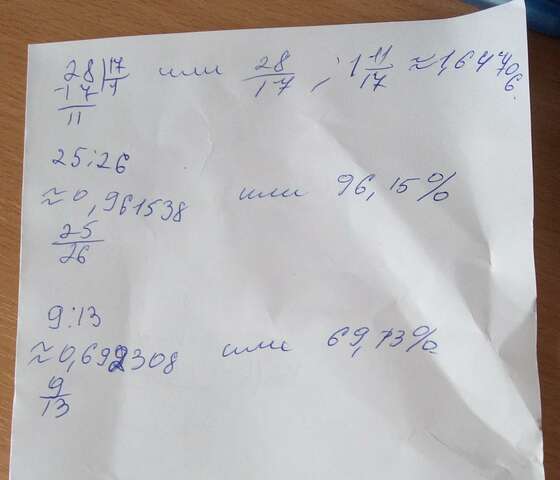 28|17 или 28/17 ; 1 11/17 ≈1,64706
-17 1
11
25:26
≈0,961538 или 96,15%
25/26
9:13
≈0,692308 или 69,73%
9/13